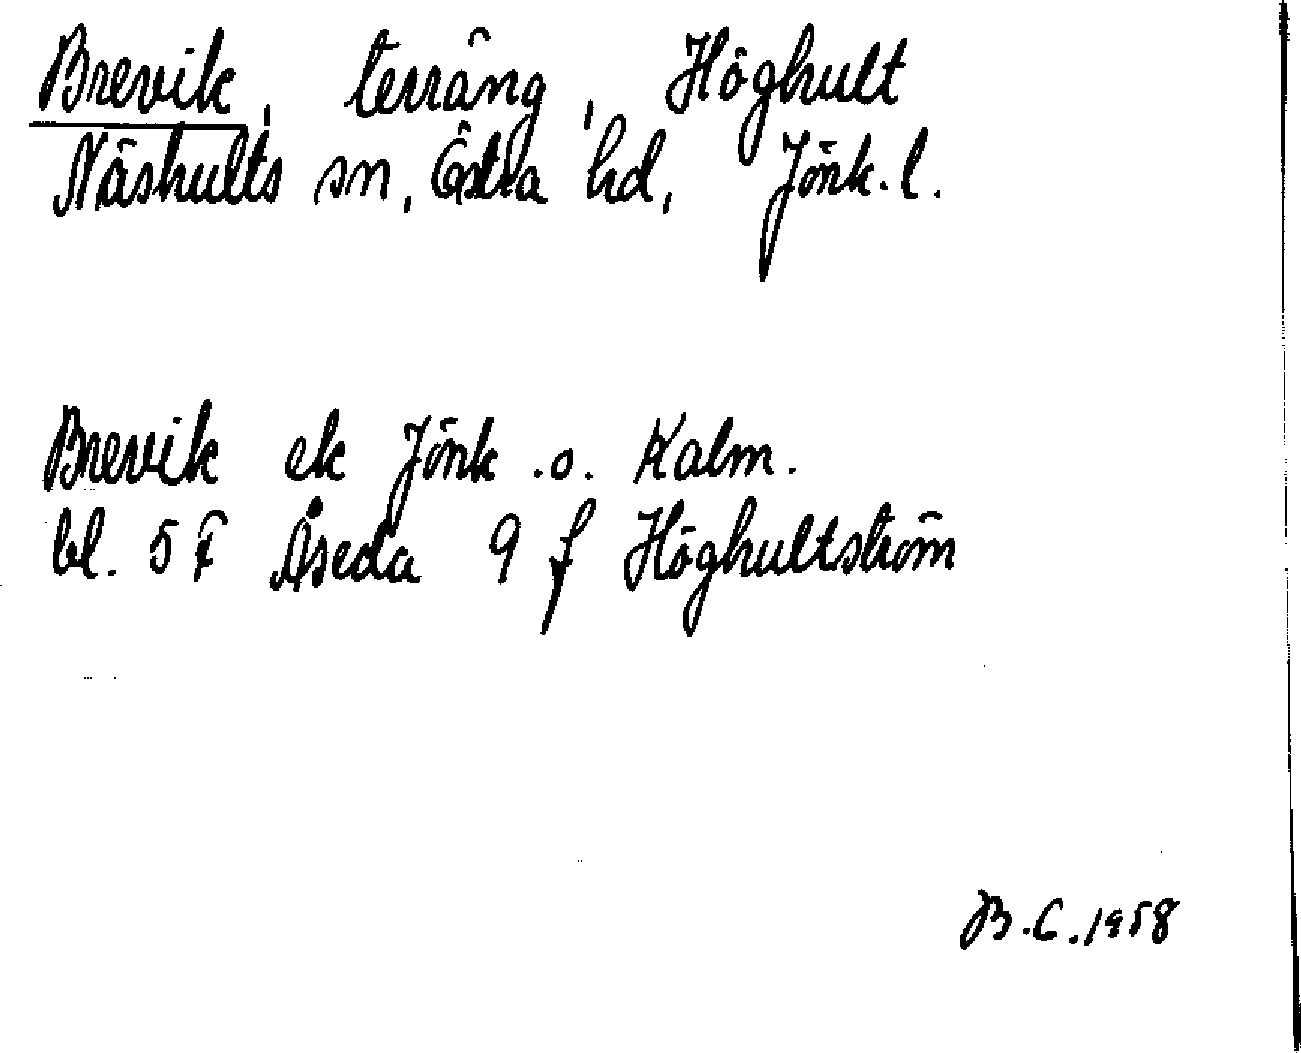 Brevik, terräng, Höghult
Näshults sn, Östra hd, Jönk. l.
Brevik ek Jönk .o. Kalm.
bl. 5 F Åseda 9 f Höghultström
B.C. 1958